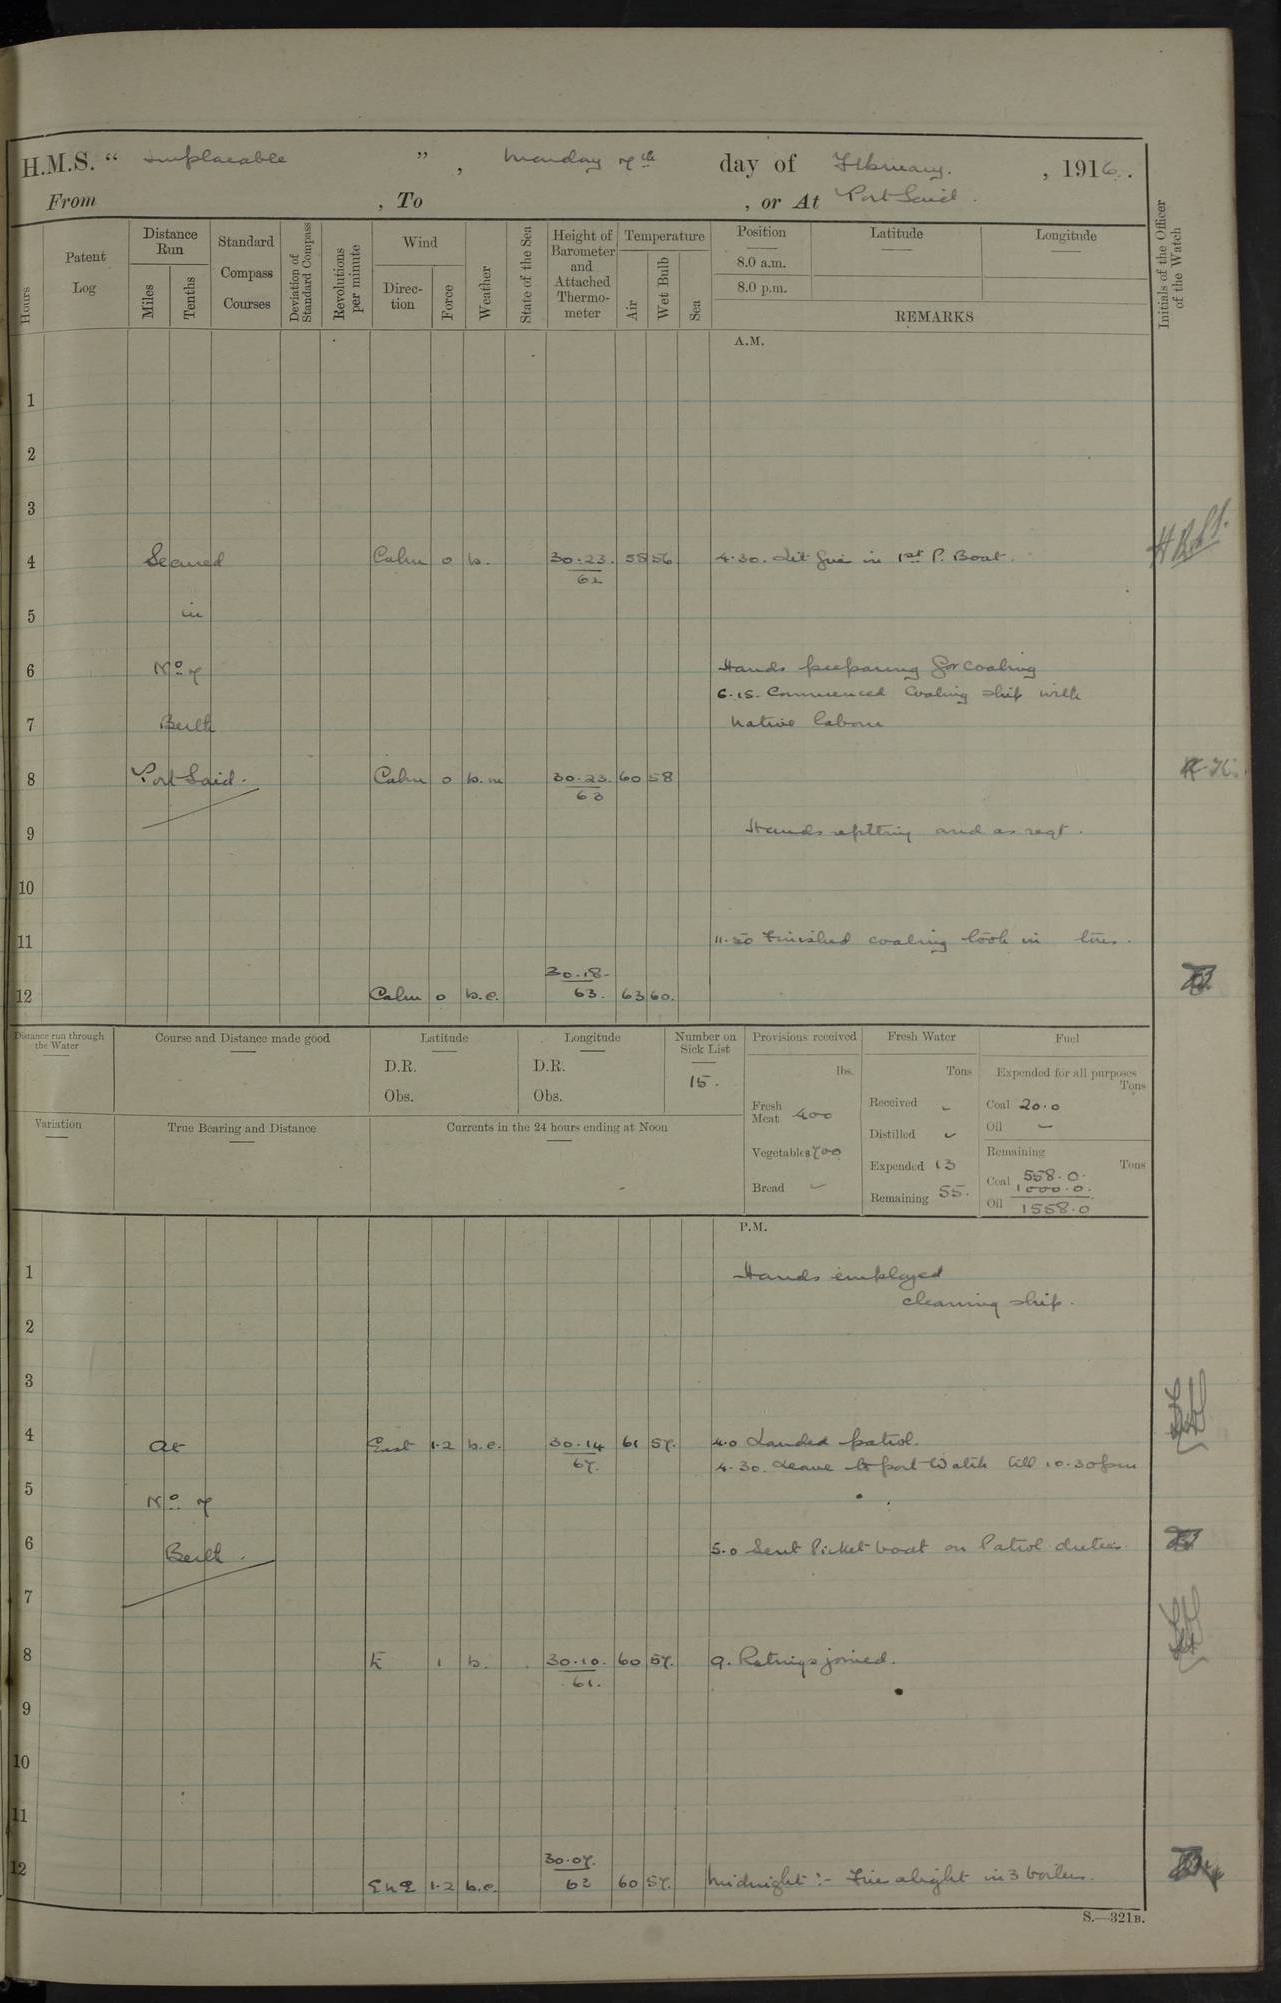 H.M.S. “ Implacable ”, Monday 7th day of February, 1916.
From , To , or At Port Said.
Hours
Patent Log
Distance Run
Miles
Tenths
Standard Compass Courses
Deviation of Standard Compass
Revolutions per minute
Wind
Direction
Force
Weather
State of the Sea
Height of Barometer and Attached Thermometer
Temperature
Air
Wet Bulb
Sea
Position
Latitude
Longitude
8.0 a.m.
8.0 p.m.
REMARKS
Initials of the Officer of the Watch
A.M.
1
2
3
4 Secured Calm 0 b. 30.23. 62 58 56 4.30. Lit fire in 1st P. Boat.
5 in
6 No 7 Hands preparing for coaling
6.15. Commenced Coaling ship with
7 Berth native labour
8 Port Said. Calm 0 b.m 30.23. 63 60 58
9 Hands refitting and as reqt.
10
11 11.50 Finished coaling took in tons.
12 Calm 0 b.c. 30.18. 63. 63 60.
Distance run through the Water
Course and Distance made good
Latitude
D.R.
Obs.
Longitude
D.R.
Obs.
Number on Sick List
15.
Variation
True Bearing and Distance
Currents in the 24 hours ending at Noon
Provisions received
lbs.
Fresh Meat 400
Vegetables 700
Bread –
Fresh Water
Tons
Received –
Distilled –
Expended 13
Remaining 55.
Fuel
Expended for all purposes
Tons
Coal 20.0
Oil –
Remaining
Tons
Coal 558.0.
1000.0.
Oil 1558.0
P.M.
1 Hands employed
cleaning ship.
2
3
4 At East 1.2 b.c. 30.14 67. 61 57. 4.0 Landed patrol.
4.30. Leave to port Watch till 10.30pm
5 No 7
6 Berth. 5.0 Sent Picket boat on Patrol duties
7
8 E 1 b. 30.10. 61. 60 57. 9. Ratings joined.
9
10
11
12 ENE 1.2 b.c. 30.07. 62 60 57. Midnight :- Fires alight in 3 boilers.
S.—321B.